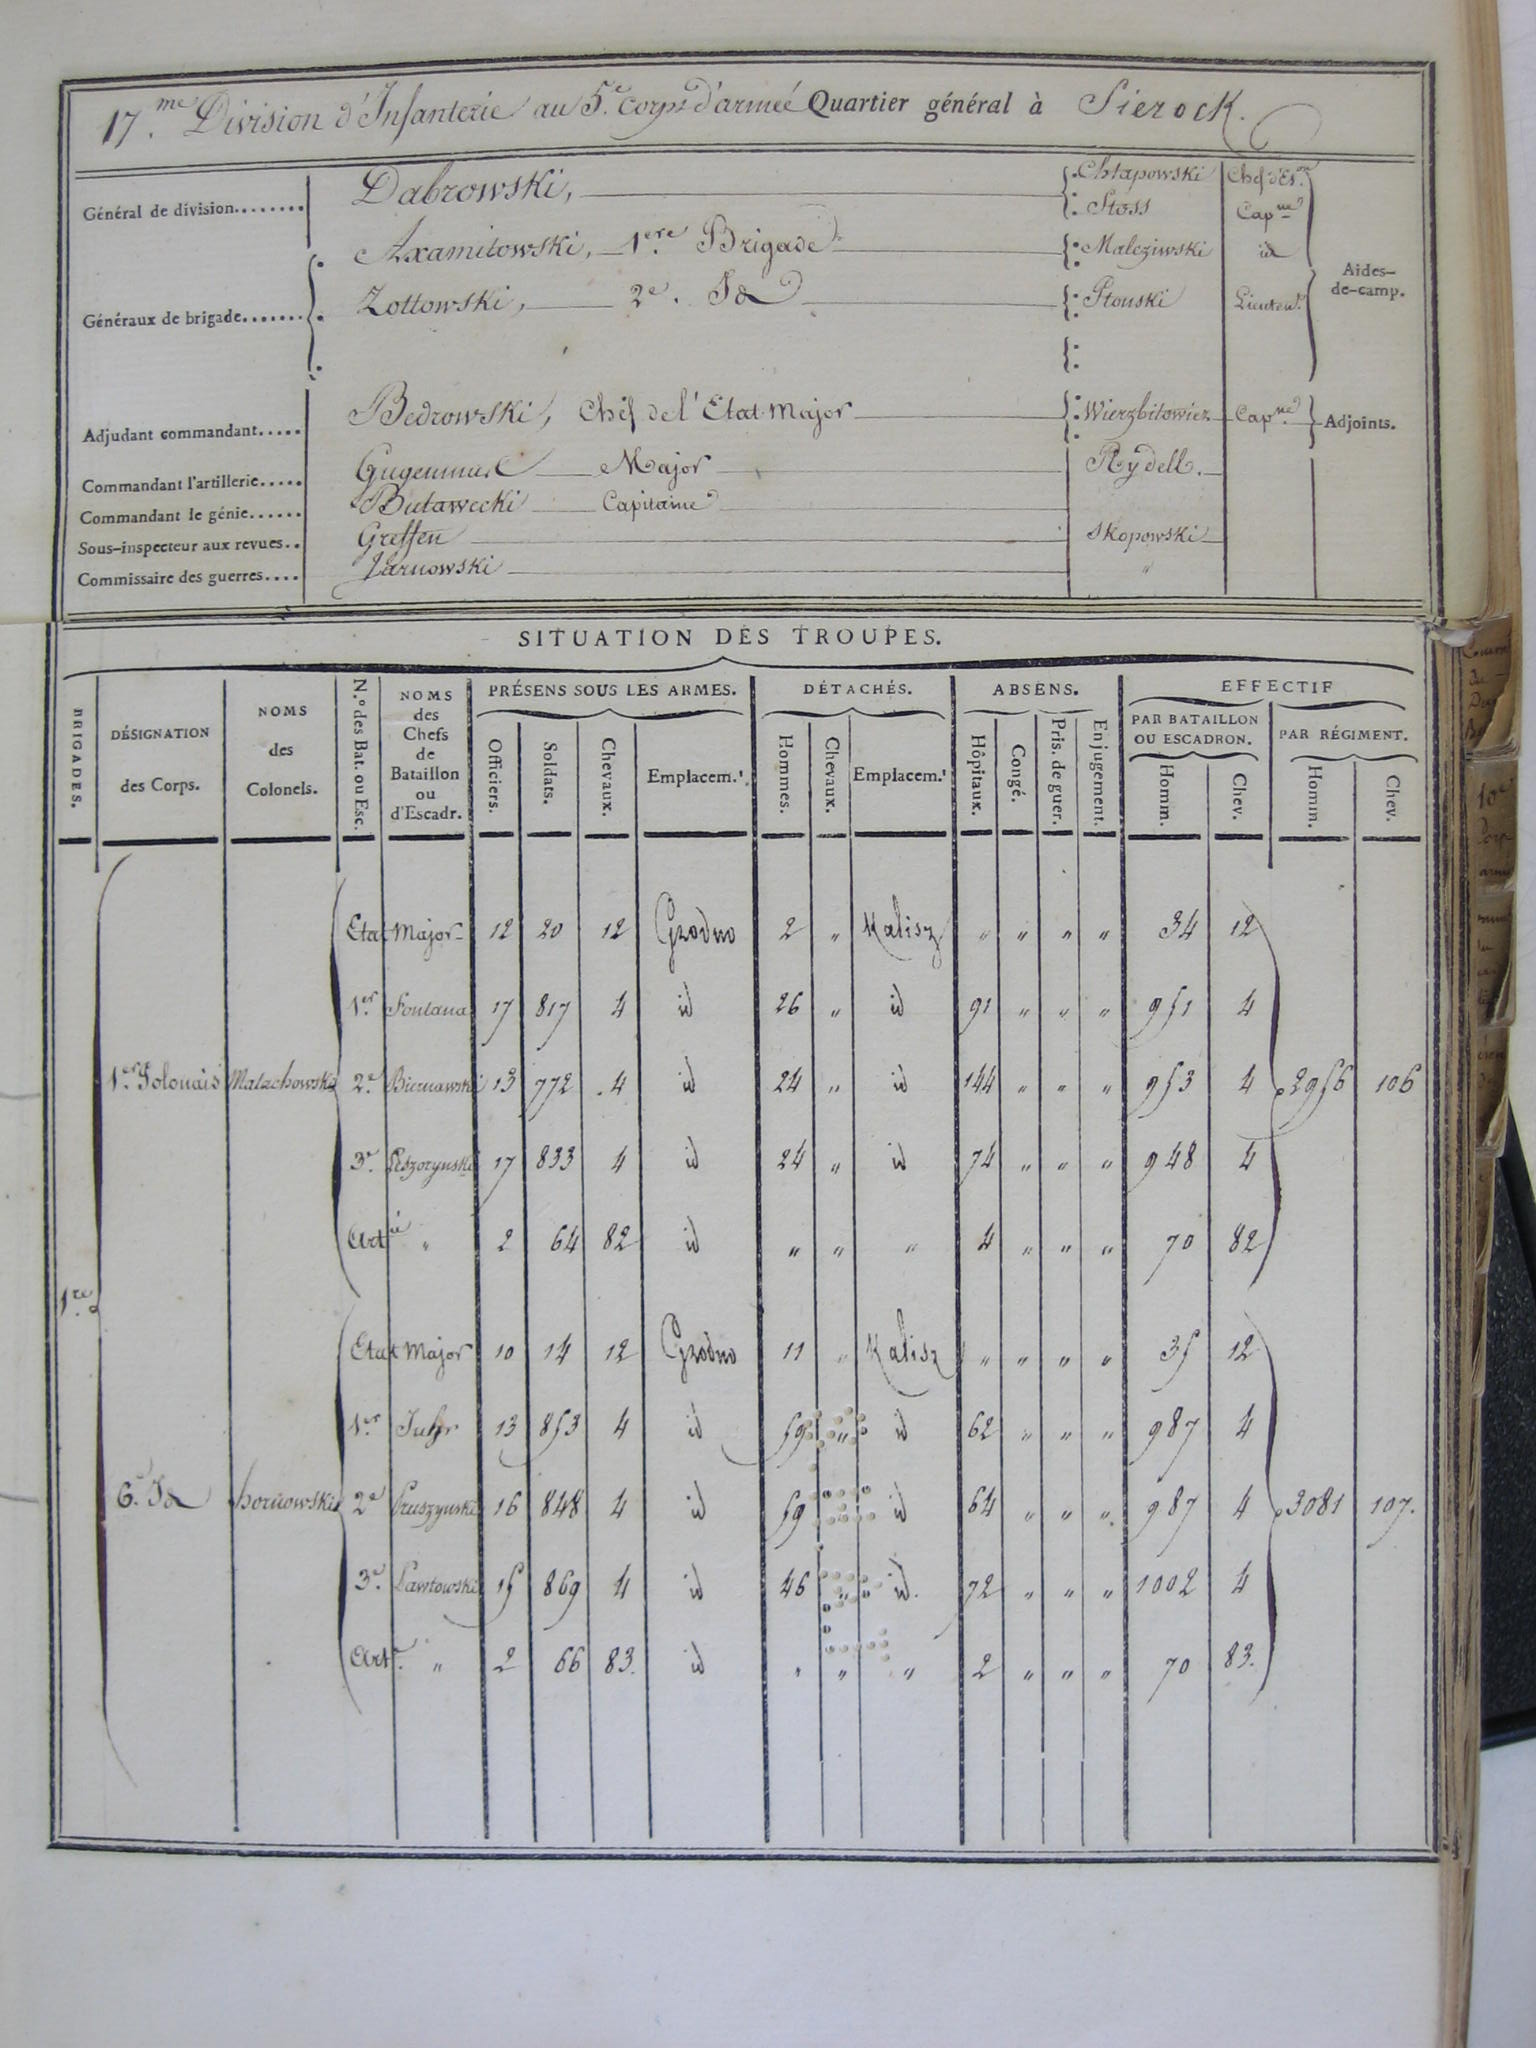 17.me Division d'Infanterie au 5.e corps d'armée Quartier général à Sierock.
Général de division........ Dabrowski, Chlapowski Chef d'Es.on
Stoss Cap.ne
Axamitowski, 1.ere Brigade Malcziwski id
Aides-de-camp.
Généraux de brigade....... Zottowski, 2e. Id Stouski Lieuten.t
Adjudant commandant..... Bedrowski, Chef de l'Etat Major Wierzbitowiez Cap.ne Adjoints.
Commandant l'artillerie..... Major Rydell.
Commandant le génie...... Butawecki Capitaine
Sous-inspecteur aux revues.. Greffen Skopowski
Commissaire des guerres.... Jarnowski "
SITUATION DES TROUPES.
BRIGADES. DÉSIGNATION des Corps. NOMS des Colonels. N.º des Bat. ou Esc. NOMS des Chefs de Bataillon ou d'Escadr. PRÉSENS SOUS LES ARMES. DÉTACHÉS. ABSENS. EFFECTIF
PAR BATAILLON OU ESCADRON. PAR RÉGIMENT.
Officiers. Soldats. Chevaux. Emplacem.t Hommes. Chevaux. Emplacem.t Hôpitaux. Congé. Pris. de guer. Enjugement. Homm. Chev. Homm. Chev.
Etat Major 12 20 12 Grodno 2 " Kalisz " " " " 34 12
1.er Fontana 17 817 4 id 26 " id 91 " " " 951 4
1.er Polonais Malachowski 2.e Biernawski 13 772 4 id 24 " id 144 " " " 953 4 2956 106
3.e 17 833 4 id 24 " id 74 " " " 948 4
Art.ie " 2 64 82 id " " " 4 " " " 70 82
1.re
Etat Major 10 14 12 Grodno 11 " Kalisz " " " " 35 12
1.er 13 853 4 id 59 " id 62 " " " 987 4
6.e Id 2.e Pruszynski 16 848 4 id 59 id 64 " " " 987 4 3081 107.
3.e 15 869 4 id 46 " id. 72 " " " 1002 4
Art.ie " 2 66 83. id " " " 2 " " " 70 83.